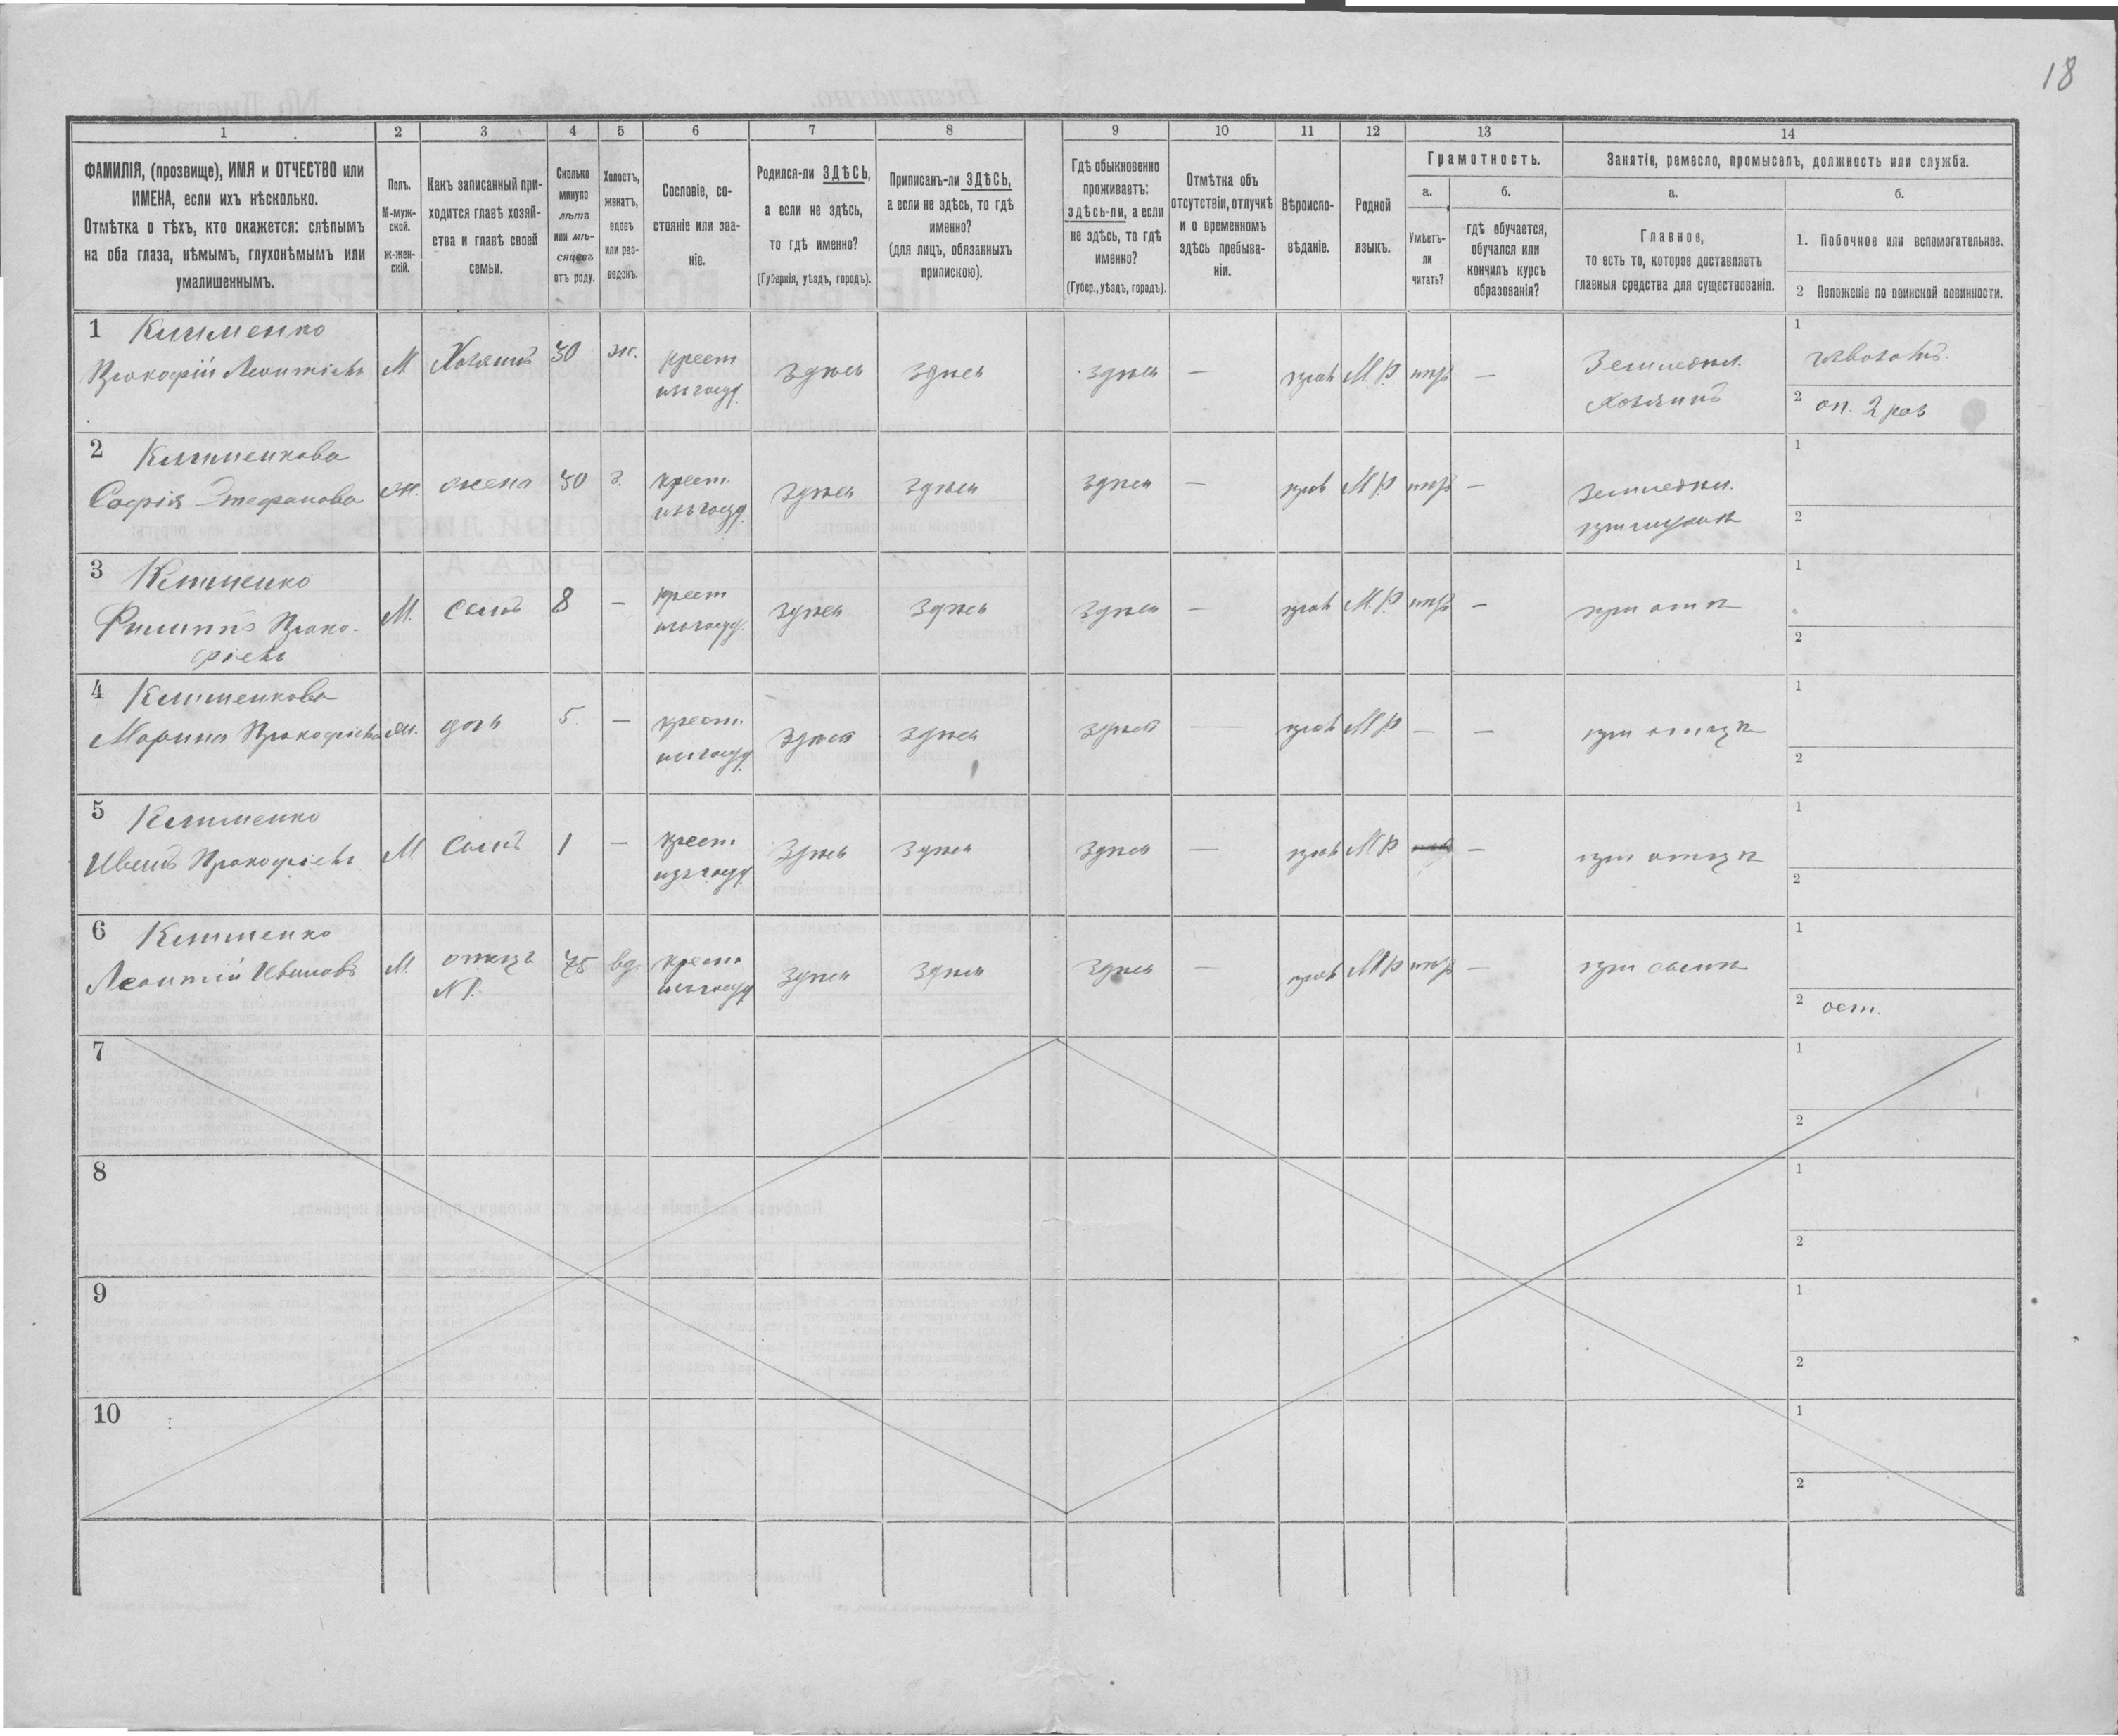 18
1 2 3 4 5 6 7 8 9 10 11 12 13 14
ФАМИЛІЯ, (прозвище), ИМЯ и ОТЧЕСТВО или
ИМЕНА, если ихъ нѣсколько.
Отмѣтка о тѣхъ, кто окажется: слѣпымъ
на оба глаза, нѣмымъ, глухонѣмымъ или
умалишеннымъ.
Полъ.
М-муж-
ской.
ж-жен-
скій.
Какъ записанный при-
ходится главѣ хозяй-
ства и главѣ своей
семьи.
Сколько
минуло
лѣтъ
или мѣ-
сяцевъ
отъ роду.
Холостъ,
женатъ,
вдовъ
или раз-
веденъ.
Сословіе, со-
стояніе или зва-
ніе.
Родился-ли ЗДѢСЬ,
а если не здѣсь,
то гдѣ именно?
(Губернія, уѣздъ, городъ).
Приписанъ-ли ЗДѢСЬ,
а если не здѣсь, то гдѣ
именно?
(для лицъ, обязанныхъ
припискою).
Гдѣ обыкновенно
проживаетъ:
здѣсь-ли, а если
не здѣсь, то гдѣ
именно?
(Губер., уѣздъ, городъ).
Отмѣтка объ
отсутствіи, отлучкѣ
и о временномъ
здѣсь пребыва-
ніи.
Вѣроиспо-
вѣданіе.
Родной
языкъ.
Грамотность.
а. б.
Умѣетъ-
ли
читать?
гдѣ обучается,
обучался или
кончилъ курсъ
образованія?
Занятіе, ремесло, промыселъ, должность или служба.
а. б.
Главное,
то есть то, которое доставляетъ
главныя средства для существованія.
1. Побочное или вспомогательное.
2 Положеніе по воинской повинности.
1 Клименко
Прокофій Леонтіевъ М Хозяинъ 30 ж. крест здѣсь здѣсь здѣсь — прав М.Р. нѣтъ — Земледѣл. 1 извозомъ
изъ госуд. хозяинъ 2 оп. 2 раз
2 Клименкова
Софія Стефанова ж. жена 30 з. крест. здѣсь здѣсь здѣсь — прав М.Р. нѣтъ — земледѣл. 1
изъ госуд. при мужѣ 2
3 Клименко
Филиппъ Проко- М. сынъ 8 — крест здѣсь здѣсь здѣсь — прав М.Р. нѣтъ — при отцѣ 1
фіевъ изъ госуд. 2
4 Клименкова
Марина Прокофіева ж. дочь 5 — крест. здѣсь здѣсь здѣсь — прав М.Р. — — при отцѣ 1
изъ госуд. 2
5 Клименко
Иванъ Прокофіевъ М сынъ 1 — крест здѣсь здѣсь здѣсь — прав М.Р. — при отцѣ 1
изъ госуд. 2
6 Клименко
Леонтій Ивановъ М. отецъ 75 вд. крест. здѣсь здѣсь здѣсь — прав М.Р. нѣтъ — при сынѣ 1
№1. изъ госуд. 2 ост.
7 1
2
8 1
2
9 1
2
10 1
2